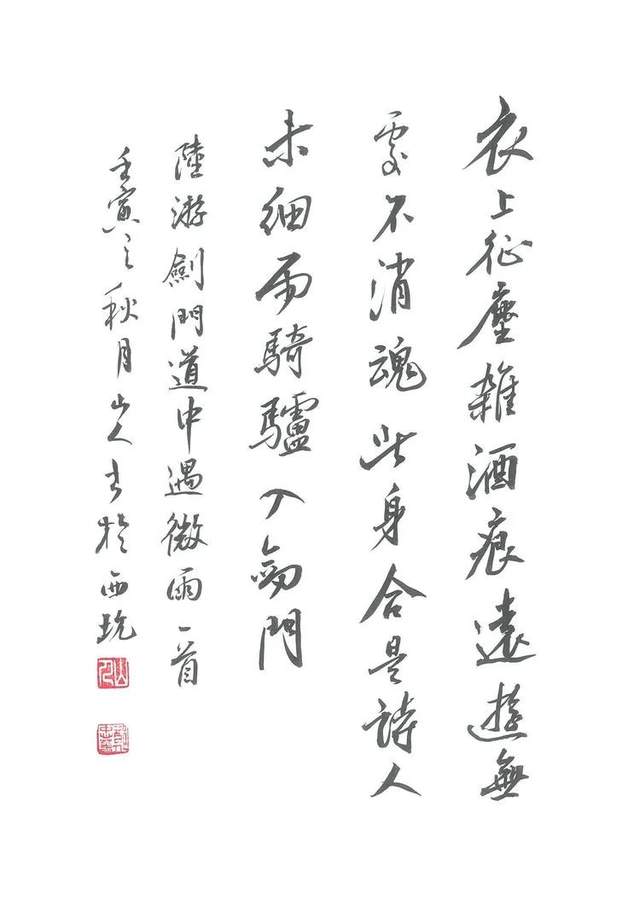 衣上征塵雜酒痕遠遊無
處不消魂此身合是詩人
未細雨騎驢入劍門
陸游劍門道中遇微雨一首
壬寅之秋月山人書於西
山人